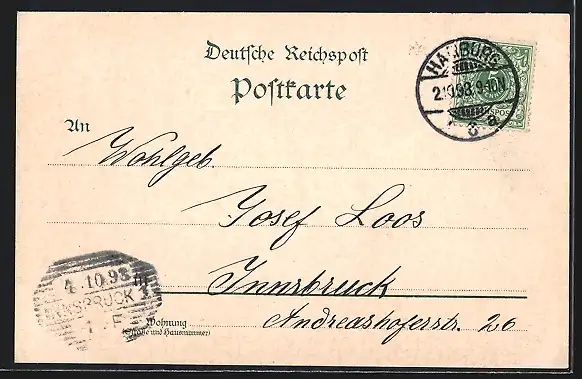 Deutsche Reichspost
Postkarte
HAMBURG
2.10.98. 9-10N
8 a
5
An
Wohlgeb.
Josef Loos
Innsbruck
4 10.98
INNSBRUCK
Wohnung
(Straße und Hausnummer)
Andreashoferstr. 26